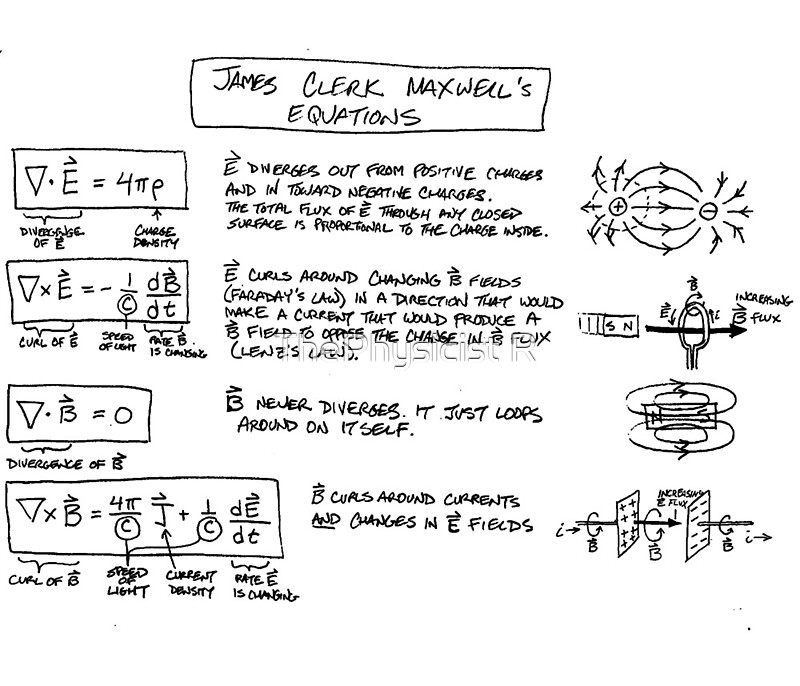 JAMES CLERK MAXWELL'S
EQUATIONS
∇·E⃗ = 4πρ
DIVERGENCE
OF E⃗
CHARGE
DENSITY
E⃗ DIVERGES OUT FROM POSITIVE CHARGES
AND IN TOWARD NEGATIVE CHARGES.
THE TOTAL FLUX OF E⃗ THROUGH ANY CLOSED
SURFACE IS PROPORTIONAL TO THE CHARGE INSIDE.
+ −
∇×E⃗ = - 1/C dB⃗/dt
CURL OF E⃗
SPEED
OF LIGHT
RATE B⃗
IS CHANGING
E⃗ CURLS AROUND CHANGING B⃗ FIELDS
(FARADAY'S LAW) IN A DIRECTION THAT WOULD
MAKE A CURRENT THAT WOULD PRODUCE A
B⃗ FIELD TO OPPOSE THE CHANGE IN B⃗ FLUX
(LENZ'S LAW).
S N
E⃗
B⃗
i
INCREASING
B⃗ FLUX
ThePhysicist R
∇·B⃗ = 0
DIVERGENCE OF B⃗
B⃗ NEVER DIVERGES. IT JUST LOOPS
AROUND ON ITSELF.
N
∇×B⃗ = 4π/C J⃗ + 1/C dE⃗/dt
CURL OF B⃗
SPEED
OF
LIGHT
CURRENT
DENSITY
RATE E⃗
IS CHANGING
B⃗ CURLS AROUND CURRENTS
AND CHANGES IN E⃗ FIELDS
INCREASING
E⃗ FLUX
i→ B⃗ B⃗ B⃗ i→